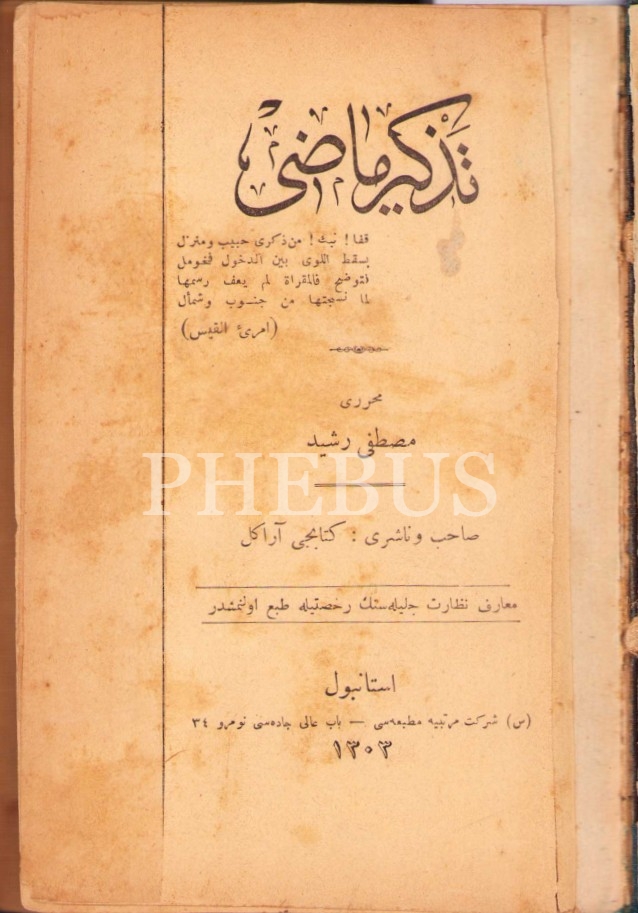 تَذْكير ماضى
قفا ! نبك ! من ذكرى حبيب ومنزل
بسقط اللوى بين الدخول فحومل
فتوضح فالمقراة لم يعف رسمها
لما نسجتها من جنوب وشمأل
(امرئ القيس)
محررى
مصطفى رشيد
PHEBUS
صاحب و ناشرى : كتابجى آراكل
معارف نظارت جليله سنك رخصتيله طبع اولنمشدر
استانبول
(س) شركت مرتبيه مطبعه سى — باب عالى جاده سى نومرو ٣٤
١٣٠٣